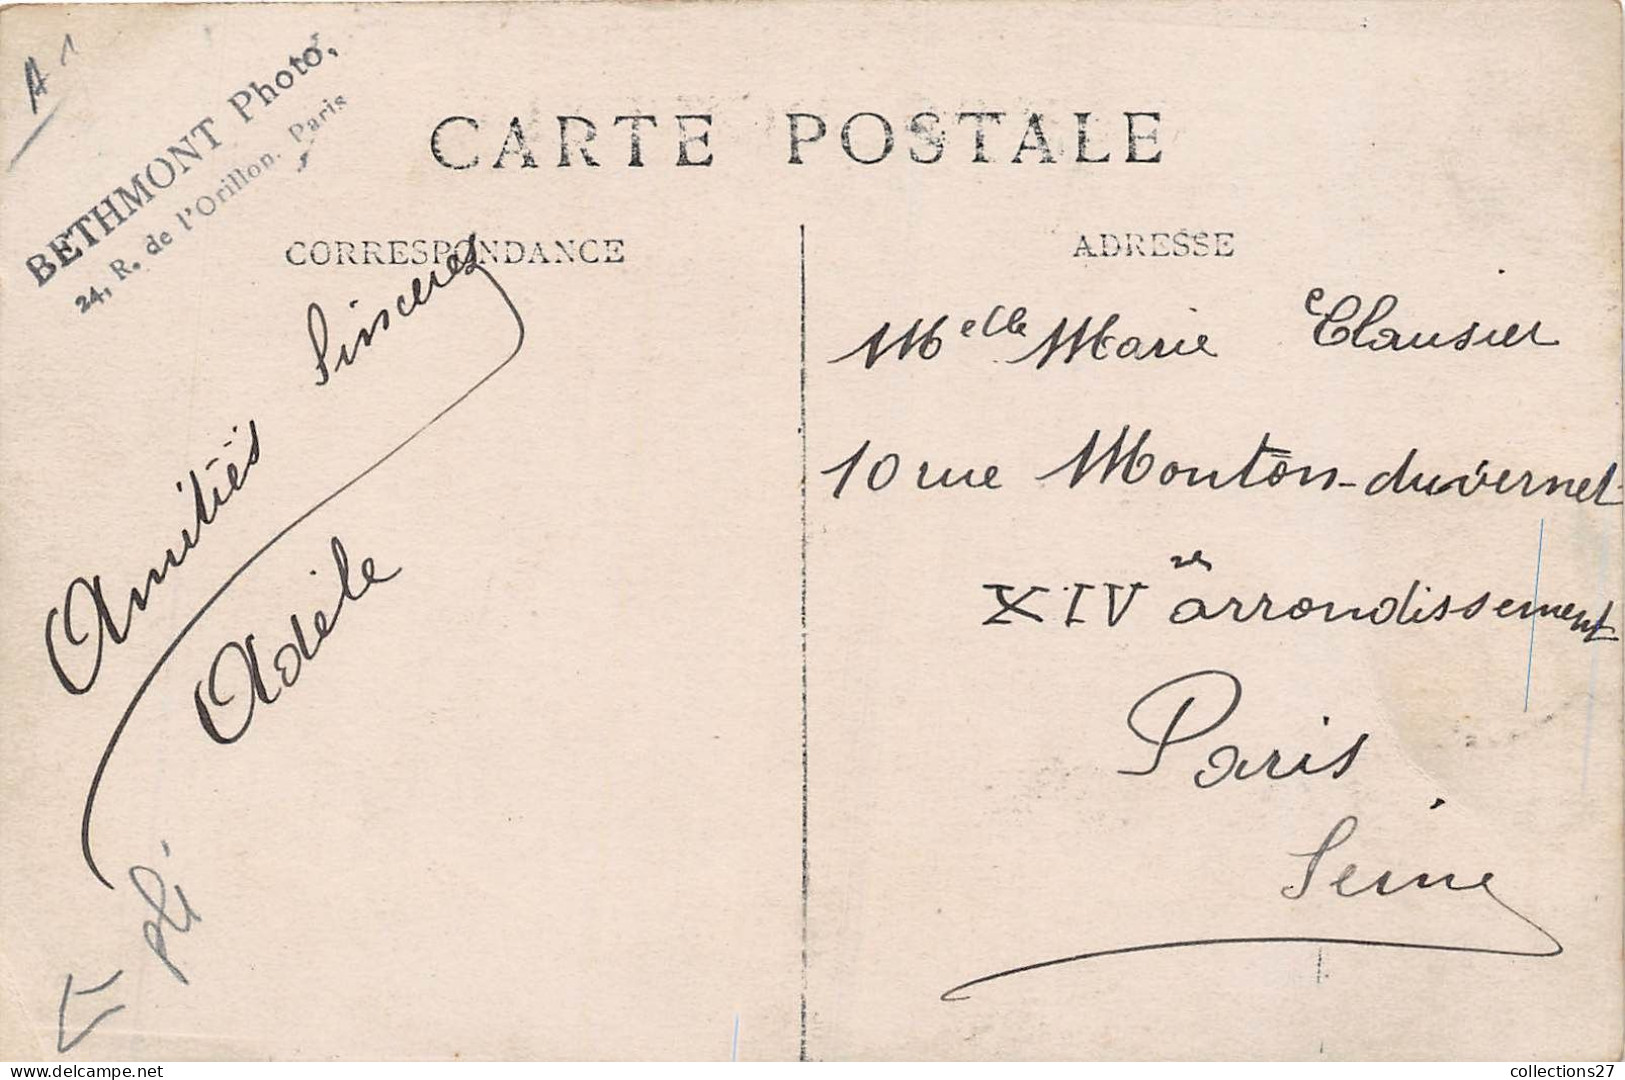 A 1
BETHMONT Photo,
24, R. de l'Orillon. Paris
CARTE POSTALE
CORRESPONDANCE
Amitiés Sincères
Adèle
pli
ADRESSE
Melle Marie Clausier
10 rue Mouton-duvernet
XIV arrondissement
Paris
Seine
collections27